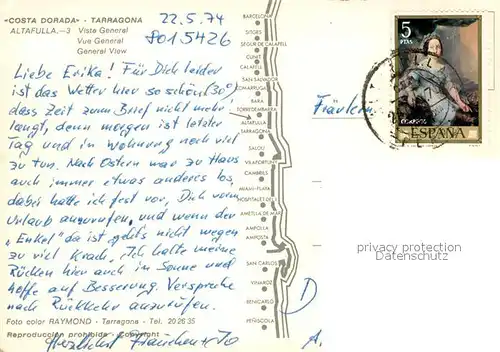 «COSTA DORADA» - TARRAGONA
ALTAFULLA.—3 Vista General
Vue General
General View
22.5.74
8015426
Liebe Erika! Für Dich leider
ist das Wetter hier so schön (30°)
dass Zeit zum Brief nicht mehr
langt, denn morgen ist letzter
Tag und in Wohnung noch viel
zu tun. Nach Ostern war zu Haus
auch immer etwas anderes los,
dabei hatte ich fest vor, Dich vorm
Urlaub anzurufen, und wenn der
„Enkel" da ist geht's nicht wegen
zu viel Krach. Ich halte meine
Rücken hier auch in Sonne und
hoffe auf Besserung. Verspreche
nach Rückkehr anzurufen.
Foto color RAYMOND - Tarragona - Tel. 20 26 35
Reproducción prohibida - Copyright
Herzlichst
BARCELONA
SITGES
SEGUR DE CALAFELL
CUNIT
CALAFELL
SAN SALVADOR
COMARRUGA
BARA
TORREDEMBARRA
ALTAFULLA
TARRAGONA
SALOU
VILAFORTUNY
CAMBRILS
MIAMI-PLAYA
HOSPITALET DEL I.
AMETLLA DE MAR
AMPOLLA
AMPOSTA
SAN CARLOS
VINAROZ
BENICARLO
PEÑISCOLA
5
PTAS
CORREOS
ESPAÑA
Fräulein
D
A.
privacy protection
Datenschutz